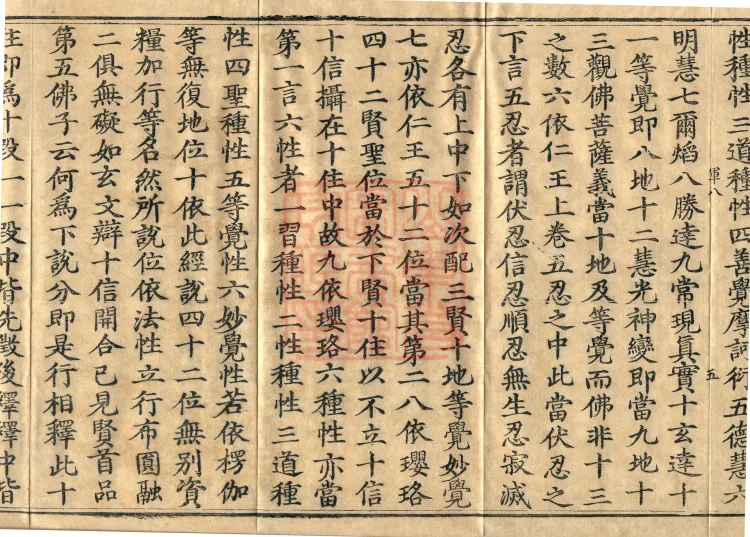 性種性三道種性四善覺摩訶衍五德慧六
明慧七爾焰八勝達九常現眞實十玄達十
一等覺即八地十二慧光神變即當九地十
三觀佛菩薩義當十地及等覺而佛非十三
之數六依仁王上卷五忍之中此當伏忍之
下言五忍者謂伏忍信忍順忍無生忍寂滅
忍各有上中下如次配三賢十地等覺妙覺
七亦依仁王五十二位當其第二八依瓔珞
四十二賢聖位當於下賢十住以不立十信
十信攝在十住中故九依瓔珞六種性亦當
第一言六性者一習種性二性種性三道種
性四聖種性五等覺性六妙覺性若依楞伽
等無復地位十依此經說四十二位無別資
糧加行等名然所說位依法性立行布圓融
二俱無礙如玄文辯十信開合已見賢首品
第五佛子云何爲下說分即是行相釋此十
住即爲十段一一段中皆先徵後釋釋中皆